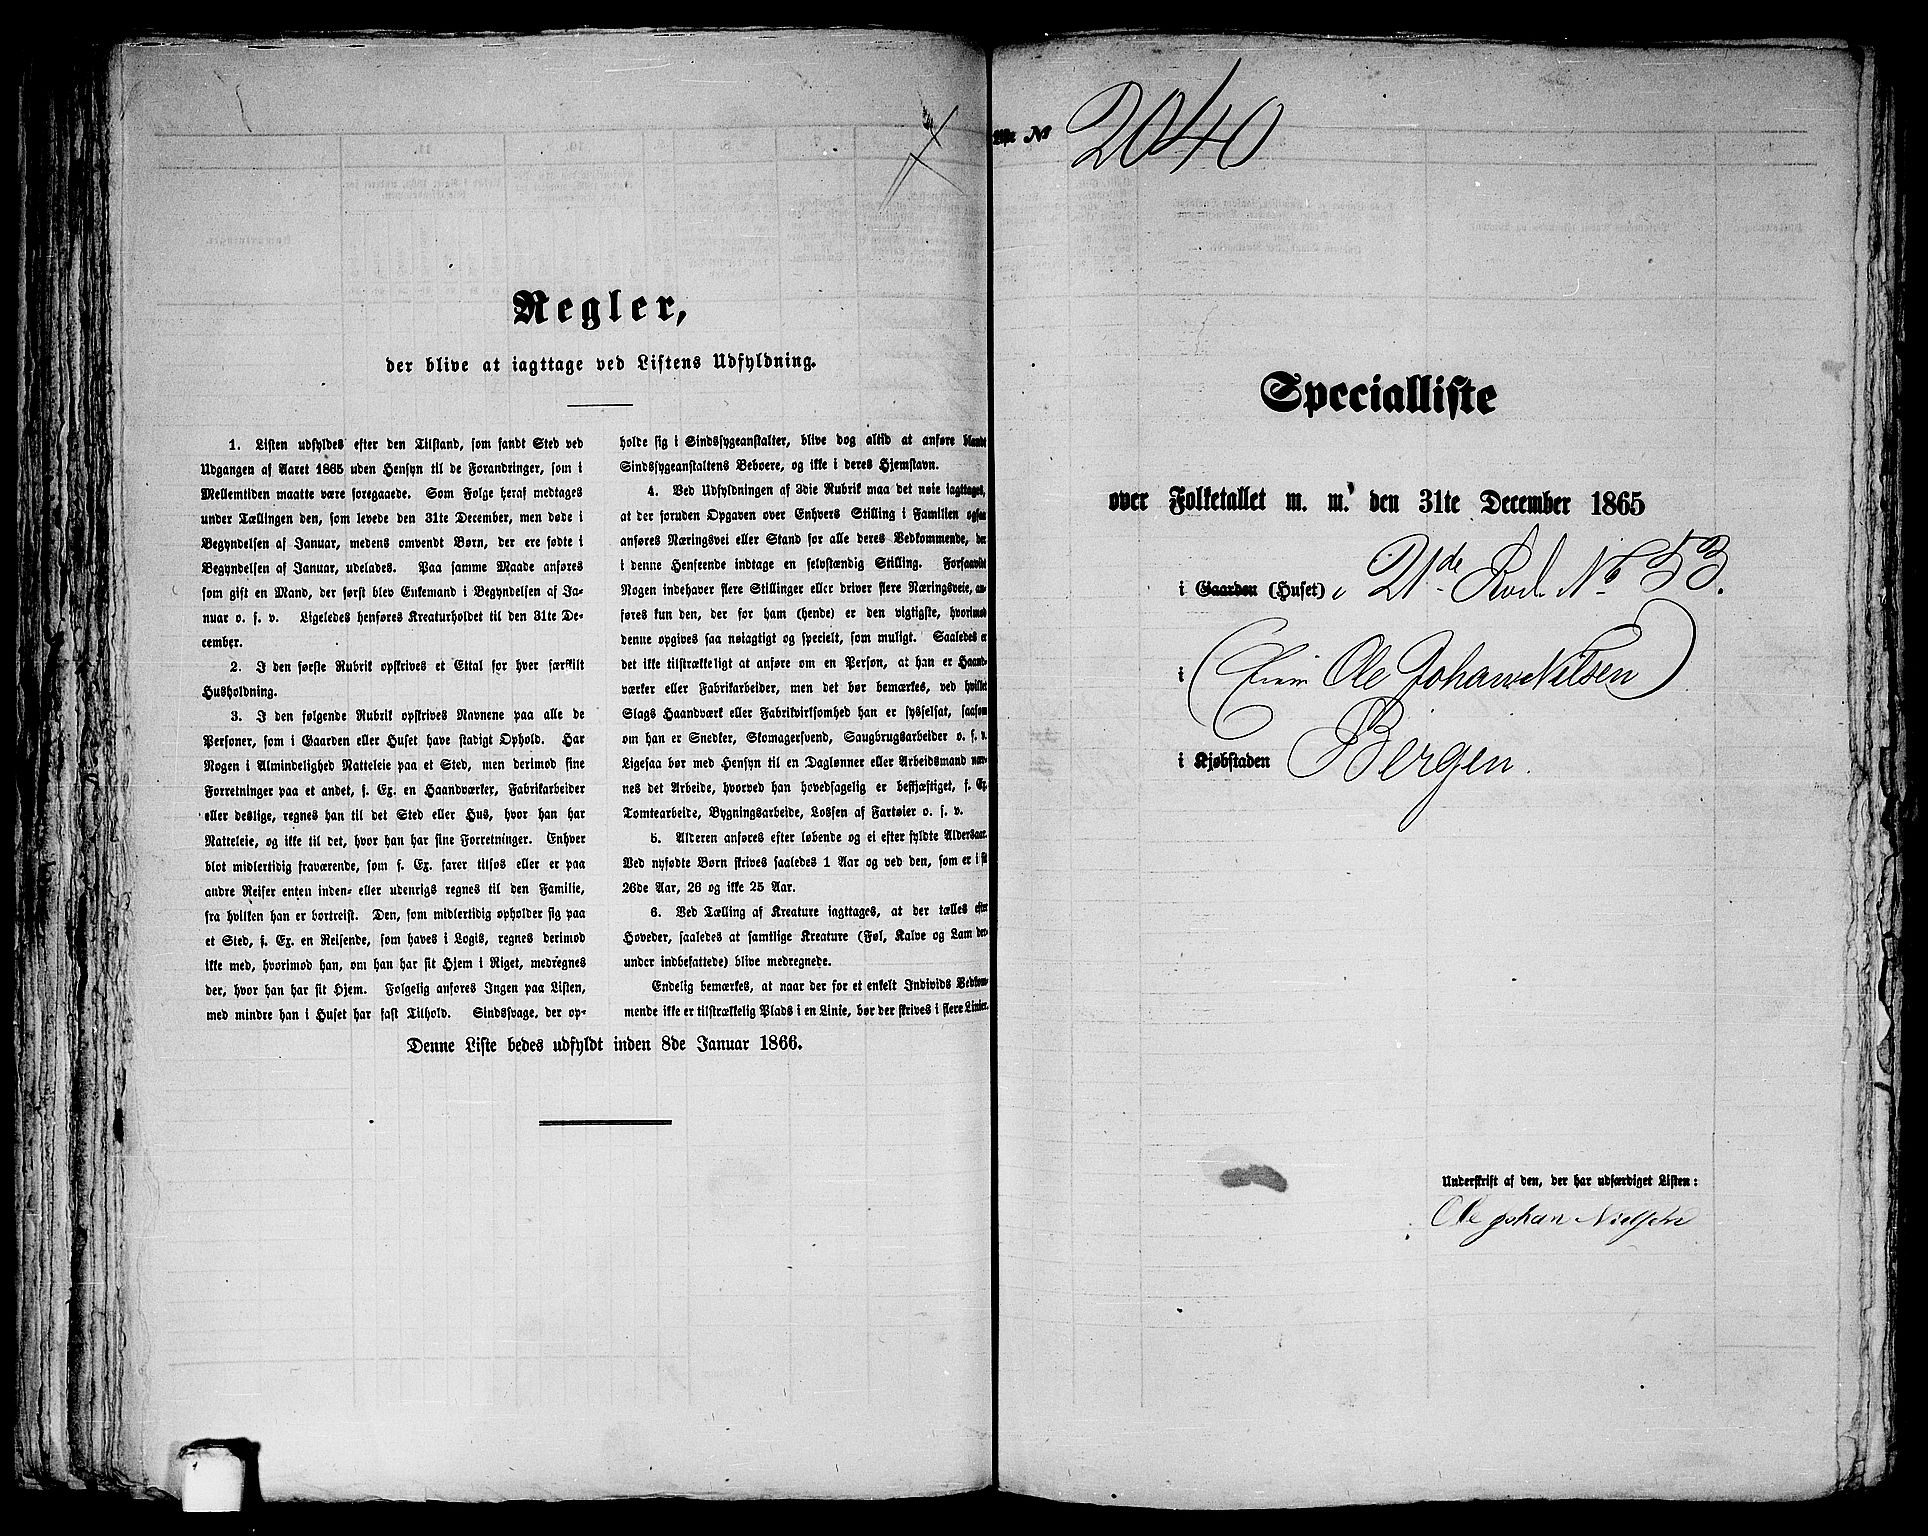 Regler,
der blive at iagttage ved Listens Udfyldning.
1. Listen udfyldes efter den Tilstand, som fandt Sted ved
Udgangen af Aaret 1865 uden Hensyn til de Forandringer, som i
Mellemtiden maatte være foregaaede. Som Følge heraf medtages
under Tællingen den, som levede den 31te December, men døde i
Begyndelsen af Januar, medens omvendt Børn, der ere fødte i
Begyndelsen af Januar, udelades. Paa samme Maade anføres
som gift en Mand, der først blev Enkemand i Begyndelsen af Ja-
nuar o. s. v. Ligeledes henføres Kreaturholdet til den 31te De-
cember.
2. I den første Rubrik opskrives et Ettal for hver særskilt
Husholdning.
3. I den følgende Rubrik opskrives Navnene paa alle de
Personer, som i Gaarden eller Huset have stadigt Ophold. Har
Nogen i Almindelighed Natteleie paa et Sted, men derimod sine
Forretninger paa et andet, f. Ex. en Haandværker, Fabrikarbeider
eller deslige, regnes han til det Sted eller Hus, hvor han har
Natteleie, og ikke til det, hvor han har sine Forretninger. Enhver
blot midlertidig fraværende, som f. Ex. farer tilsøs eller er paa
andre Reiser enten inden- eller udenrigs regnes til den Familie,
fra hvilken han er bortreist. Den, som midlertidig opholder sig paa
et Sted, f. Ex. en Reisende, som haves i Logis, regnes derimod
ikke med, hvorimod han, om han har sit Hjem i Riget, medregnes
der, hvor han har sit Hjem. Følgelig anføres Ingen paa Listen,
med mindre han i Huset har fast Tilhold. Sindssvage, der op-
holde sig i Sindssygeanstalter, blive dog altid at anføre blandt
Sindssygeanstaltens Beboere, og ikke i deres Hjemstavn.
4. Ved Udfyldningen af 3die Rubrik maa det nøie iagttages,
at der foruden Opgaven over Enhvers Stilling i Familien ogsaa
anføres Næringsvei eller Stand for alle deres Vedkommende, der
i denne Henseende indtage en selvstændig Stilling. Forsaavidt
Nogen indehaver flere Stillinger eller driver flere Næringsveie, an-
føres kun den, der for ham (hende) er den vigtigste, hvorimod
denne opgives saa nøiagtigt og specielt, som muligt. Saaledes er
det ikke tilstrækkeligt at anføre om en Person, at han er Haand-
værker eller Fabrikarbeider, men det bør bemærkes, ved hvilket
Slags Haandværk eller Fabrikvirksomhed han er sysselsat, saasom
om han er Snedker, Skomagersvend, Saugbrugsarbeider o. s. v.
Ligesaa bør med Hensyn til en Daglønner eller Arbeidsmand næv-
nes det Arbeide, hvorved han hovedsagelig er beskjæftiget, f. Ex.
Tomtearbeide, Bygningsarbeide, Lossen af Fartøier o. s. v.
5. Alderen anføres efter løbende og ei efter fyldte Aldersaar.
Ved nyfødte Børn skrives saaledes 1 Aar og ved den, som er i sit
26de Aar, 26 og ikke 25 Aar.
6. Ved Tælling af Kreature iagttages, at der tælles efter
Hoveder, saaledes at samtlige Kreature (Føl, Kalve og Lam der-
under indbefattede) blive medregnede.
Endelig bemærkes, at naar der for et enkelt Individs Vedkom-
mende ikke er tilstrækkelig Plads i en Linie, bør der skrives i flere Linier.
Denne Liste bedes udfyldt inden 8de Januar 1866.
No 2040
Specialliste
over Folketallet m. m. den 31te December 1865
i Gaarden (Huset) i 21de Rode No 53.
i (Eier Ole Johan Nilsen)
i Kjøbstaden Bergen.
Underskrift af den, der har udfærdiget Listen:
Ole Johan Nielsen